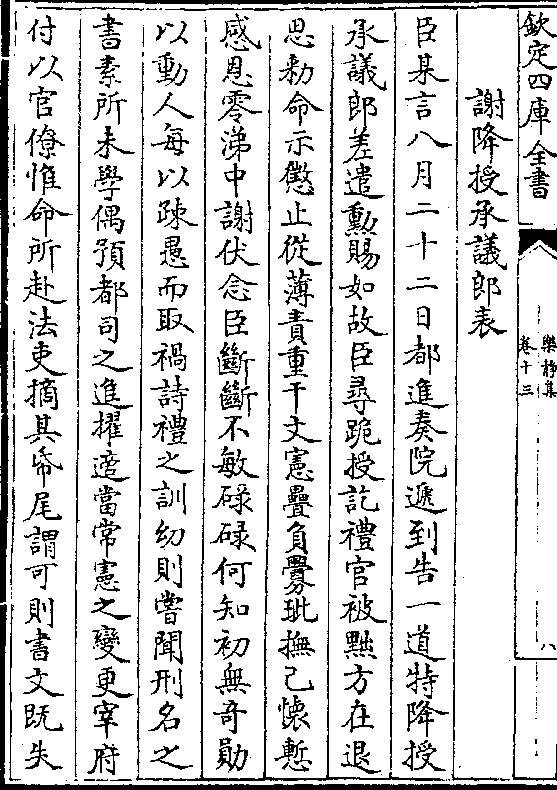 欽定四庫全書
樂靜集
卷十三
八
謝降授承議郎表
臣某言八月二十二日都進奏院遞到告一道特降授
承議郎差遣勲賜如故臣尋跪授訖禮官被黜方在退
思勅命示懲止從薄責重干文憲疊負釁玼撫己懷慙
感恩零涕中謝伏念臣斷斷不敏碌碌何知初無竒勛
以動人每以疎愚而取禍詩禮之訓幼則嘗聞刑名之
書素所未學偶預都司之進擢適當常憲之變更宰府
付以官僚惟命所赴法吏摘其帋尾謂可則書文既失